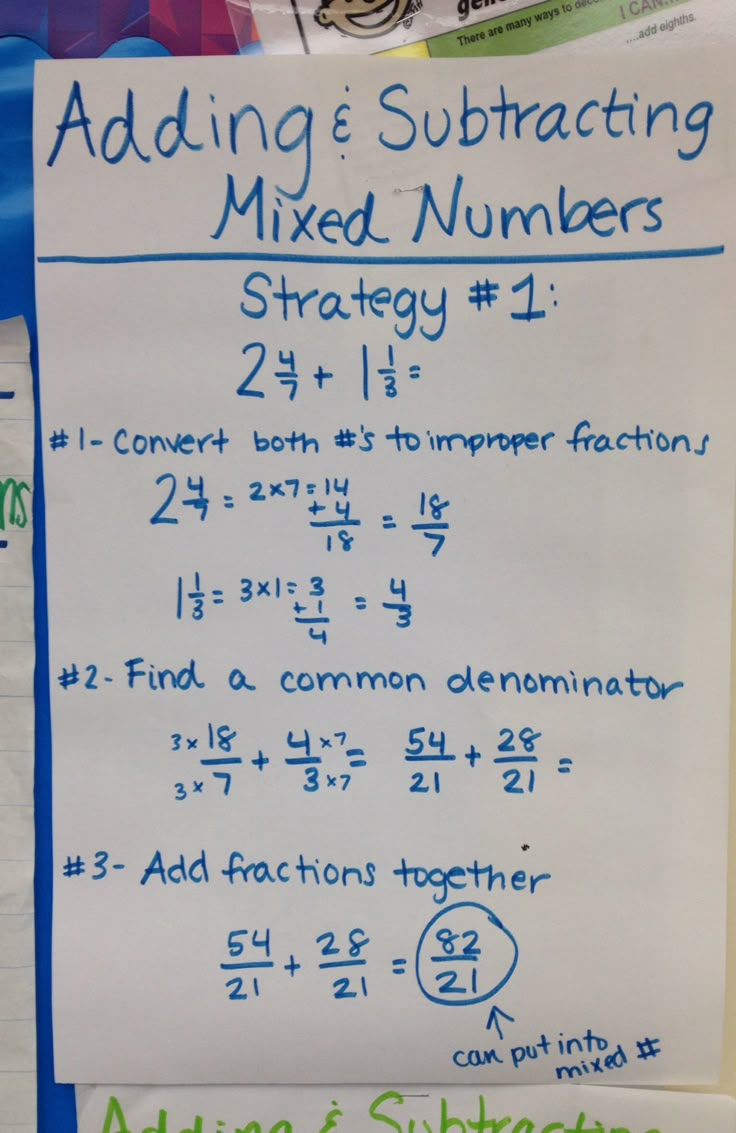 There are many ways to
I CAN...
....add eighths.
Adding & Subtracting
Mixed Numbers
Strategy #1:
2 4/7 + 1 1/3 =
#1- Convert both #'s to improper fractions
2 4/7 = 2x7=14
+4
18
= 18/7
1 1/3 = 3x1= 3
+1
4
= 4/3
#2- Find a common denominator
3x18/3x7 + 4x7/3x7 = 54/21 + 28/21 =
#3- Add fractions together
54/21 + 28/21 = 82/21
↑
can put into
mixed #
Adding & Subtracting